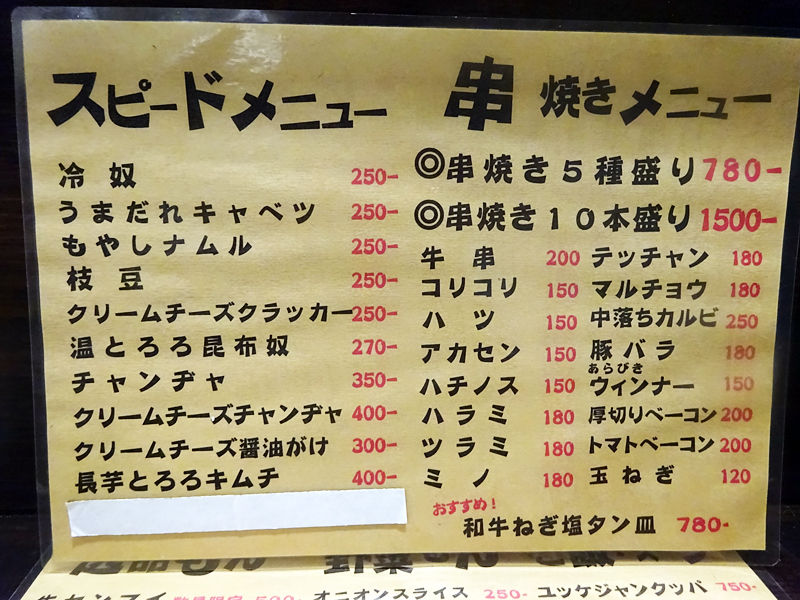 スピードメニュー
冷奴 250-
うまだれキャベツ 250-
もやしナムル 250-
枝豆 250-
クリームチーズクラッカー 250-
温とろろ昆布奴 270-
チャンヂャ 350-
クリームチーズチャンヂャ 400-
クリームチーズ醤油がけ 300-
長芋とろろキムチ 400-
串焼きメニュー
◎串焼き5種盛り 780-
◎串焼き10本盛り 1500-
牛串 200 テッチャン 180
コリコリ 150 マルチョウ 180
ハツ 150 中落ちカルビ 250
アカセン 150 豚バラ 180
あらびき
ハチノス 150 ウィンナー 150
ハラミ 180 厚切りベーコン 200
ツラミ 180 トマトベーコン 200
ミノ 180 玉ねぎ 120
おすすめ!
和牛ねぎ塩タン皿 780-
オニオンスライス 250- ユッケジャンクッパ 750-